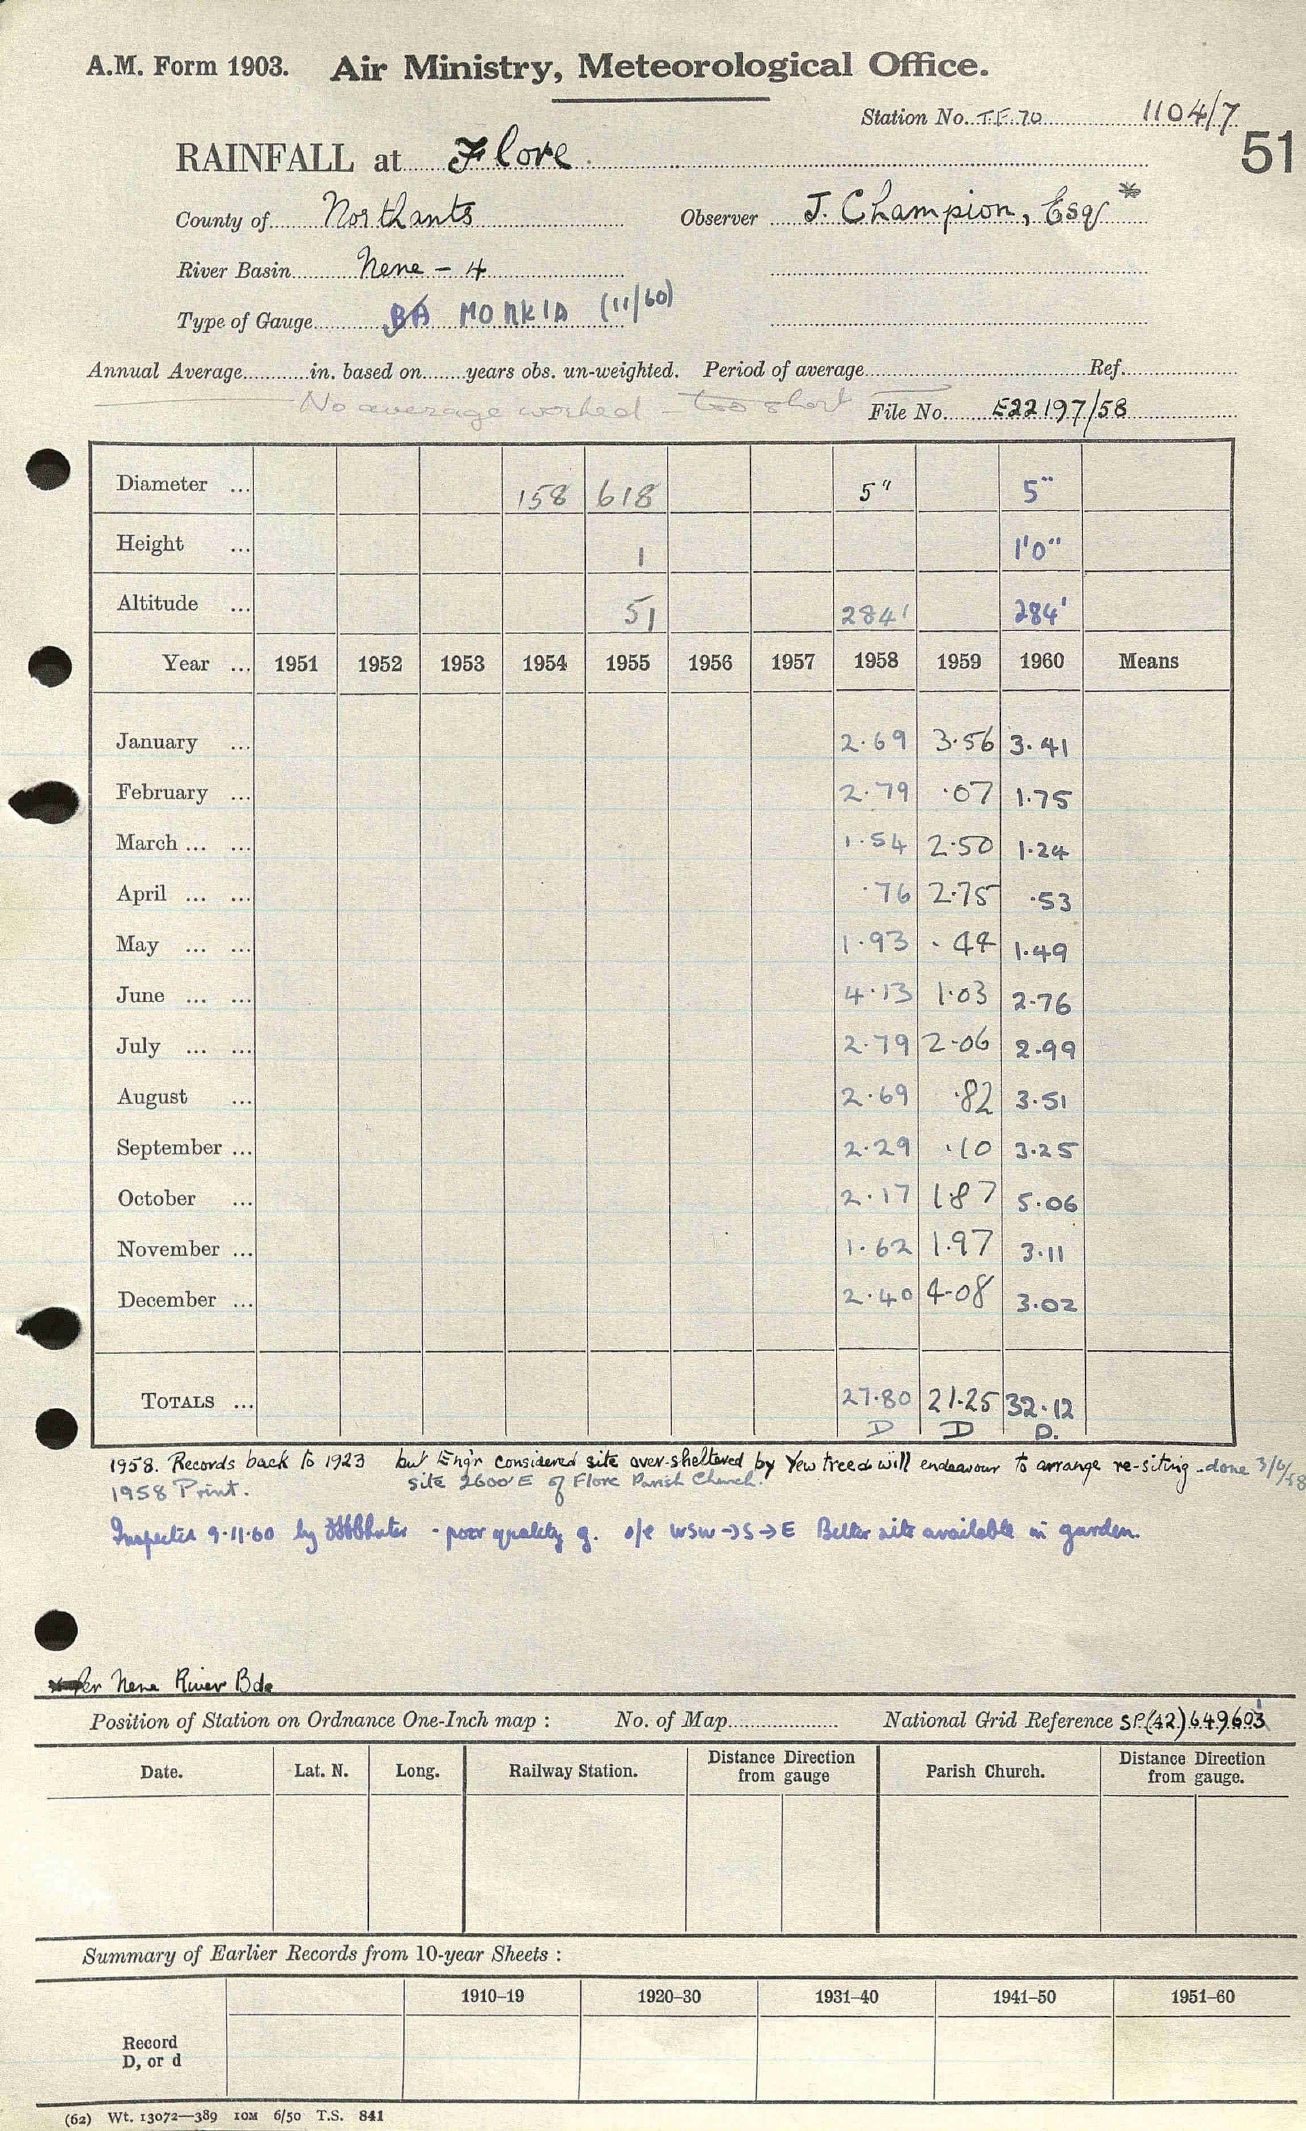 A.M. Form 1903. Air Ministry, Meteorological Office.
Station No. T.F. 70 1104/7
51
RAINFALL at Flore.
County of Northants Observer J. Champion, Esq *
River Basin Nene - 4
Type of Gauge BA MONKID (11/60)
Annual Average in. based on years obs. un-weighted. Period of average Ref.
No average worked - too short File No. E22197/58
Diameter ... 158 618 5" 5"
Height ... 1 1'0"
Altitude ... 51 284' 284'
Year ... 1951 1952 1953 1954 1955 1956 1957 1958 1959 1960 Means
January ... 2.69 3.56 3.41
February ... 2.79 .07 1.75
March ... ... 1.54 2.50 1.24
April ... ... .76 2.75 .53
May ... ... 1.93 .44 1.49
June ... ... 4.13 1.03 2.76
July ... ... 2.79 2.06 2.99
August ... 2.69 .82 3.51
September ... 2.29 .10 3.25
October ... 2.17 1.87 5.06
November ... 1.62 1.97 3.11
December ... 2.40 4.08 3.02
TOTALS ... 27.80 21.25 32.12
D D D.
1958. Records back to 1923 but Eng'r considered site over-sheltered by Yew trees will endeavour to arrange re-siting. done 3/6/58
1958 Print. site 2600' E of Flore Parish Church.
Inspected 9.11.60 by - poor quality g. o/e WSW→S→E Better site available in garden.
per Nene River Bde
Position of Station on Ordnance One-Inch map : No. of Map National Grid Reference SP.(42) 649603
Date. Lat. N. Long. Railway Station. Distance Direction from gauge Parish Church. Distance Direction from gauge.
Summary of Earlier Records from 10-year Sheets :
1910–19 1920–30 1931–40 1941–50 1951–60
Record
D, or d
(62) Wt. 13072—389 10M 6/50 T.S. 841